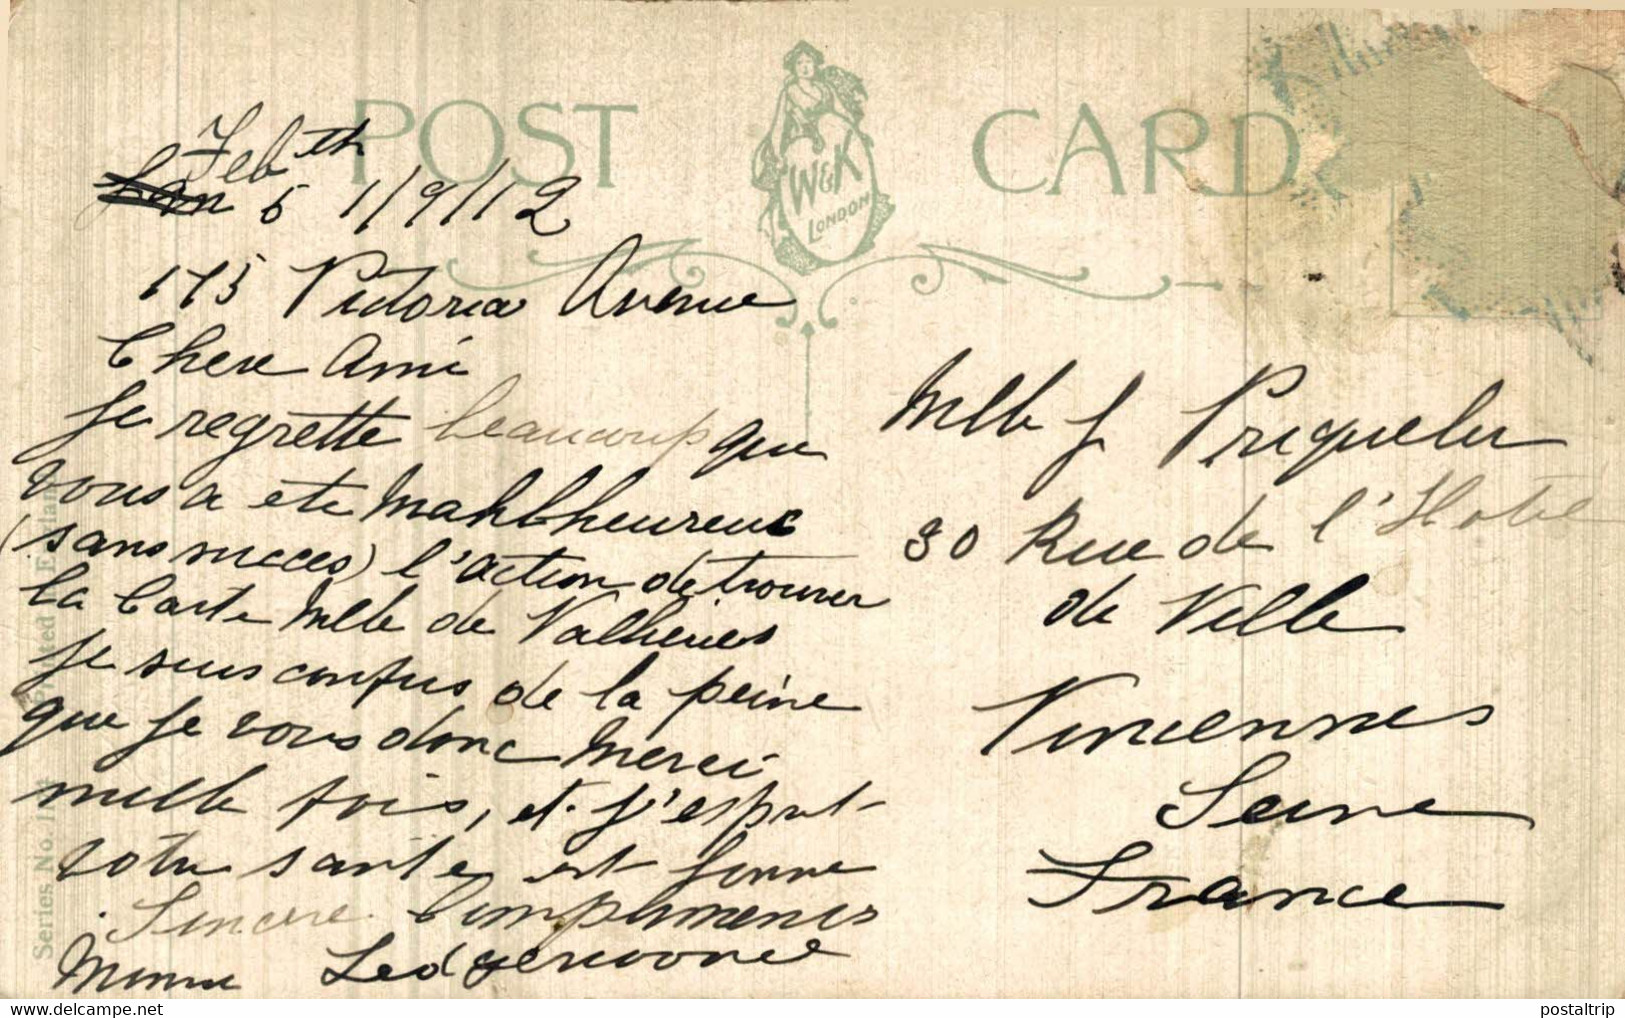 POST CARD
W & K
LONDON
Feb th
Jan 5 1/9/12
175 Victoria Avenue
Chere Ami
Je regrette beaucoup que
vous a ete
(sans succes) l'action de trouver
la Carte Mlle de
je suis confus de la peine
que je vous donc Merci
mille fois, et j'
votre sante est bonne
Sincere Compliments
Ledgerwood
Mlle J
30 Rue de l'Hotel
de Ville
Vincennes
Seine
France
Series No. 11
Printed England
postaltrip